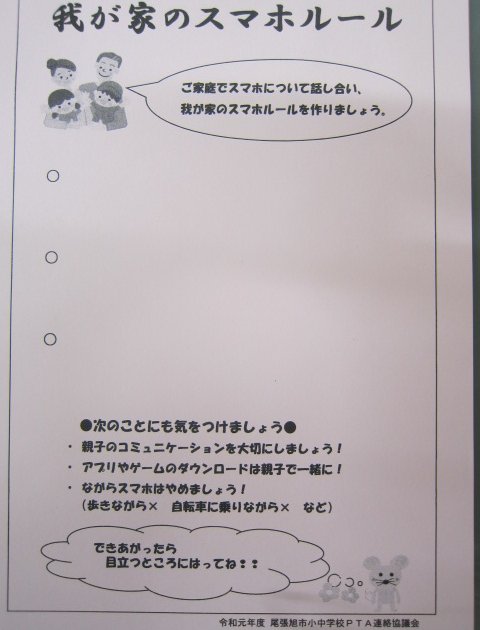 我が家のスマホルール
ご家庭でスマホについて話し合い、
我が家のスマホルールを作りましょう。
○
○
○
●次のことにも気をつけましょう●
・ 親子のコミュニケーションを大切にしましょう！
・ アプリやゲームのダウンロードは親子で一緒に！
・ ながらスマホはやめましょう！
（歩きながら×　自転車に乗りながら×　など）
できあがったら
目立つところにはってね！！
令和元年度 尾張旭市小中学校ＰＴＡ連絡協議会